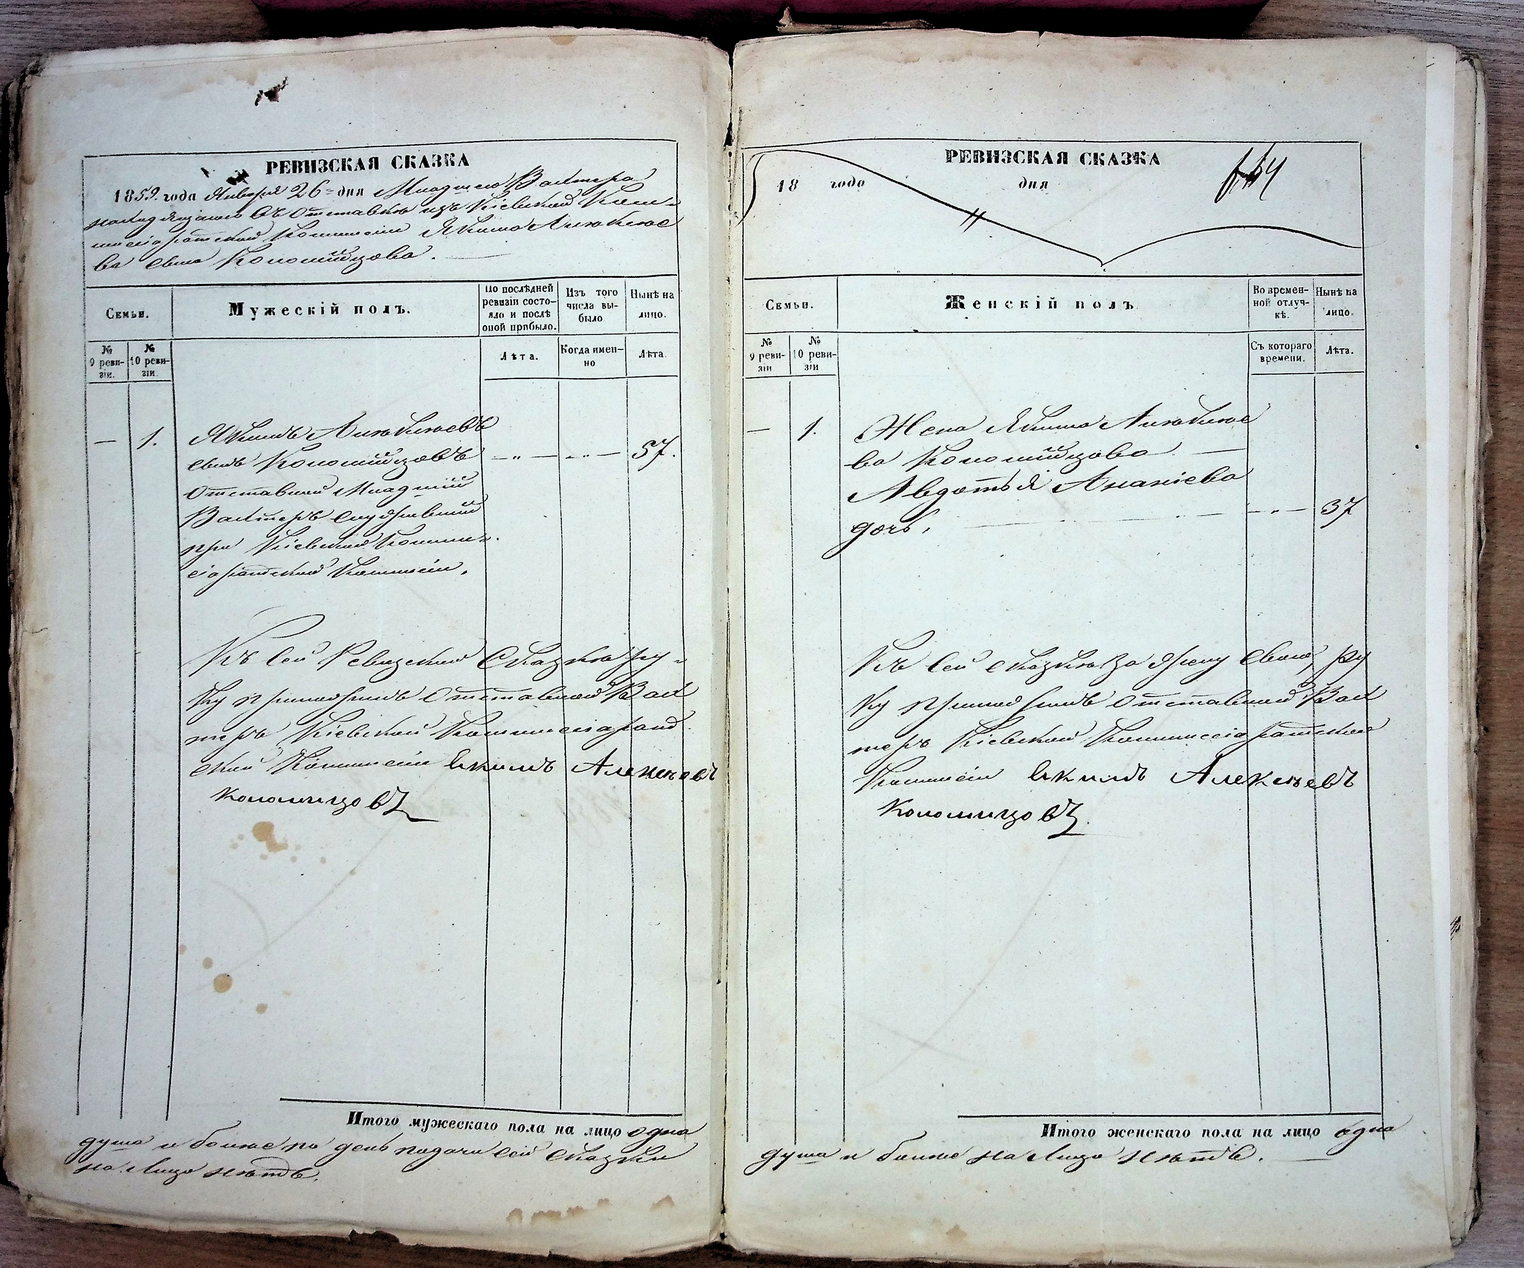 РЕВИЗСКАЯ СКАЗКА
1859 года Января 26 дня Младшего Вахтера
находящагося въ отставке изъ Кіевской Ком-
мисаріатской Коммисіи Якима Алексѣе
ва сына Коломійцова.
Семьи.
Мужескій полъ.
По послѣдней ревизіи состояло и послѣ оной прибыло.
Изъ того числа выбыло
Нынѣ на лицо.
№ 9 ревизіи.
№ 10 ревизіи
Лѣта.
Когда именно
Лѣта.
— 1. Якимъ Алексѣевъ
сынъ Коломійцовъ — „ — — „ — 57.
отставной Младшій
Вахтеръ служившій
при Кіевской Комми-
сіаратской Коммисіи.
Къ сей Ревизской Сказкѣ ру-
ку приложилъ отставной Вах
теръ Кіевской Коммисіарат
ской Коммисіи Екимъ Алексѣевъ
Коломицовъ
Итого мужескаго пола на лицо одна
душа и более по день подачи сей сказки
на лицо нѣтъ.
РЕВИЗСКАЯ СКАЗКА
18 года дня
Семьи.
Женскій полъ
Во временной отлучкѣ.
Нынѣ на лицо.
№ 9 ревизіи
№ 10 ревизіи
Съ котораго времени.
Лѣта.
— 1. Жена Якима Алексѣе
ва Коломійцова —
Авдотья Ананіева
дочь. — „ — 37
Къ сей сказкѣ за жену свою, ру
ку приложилъ отставной Вах
теръ Кіевской Коммиссіаратской
Коммисіи Екимъ Алексѣевъ
Коломицовъ.
Итого женскаго пола на лицо одна
душа и более на лицо нѣтъ.